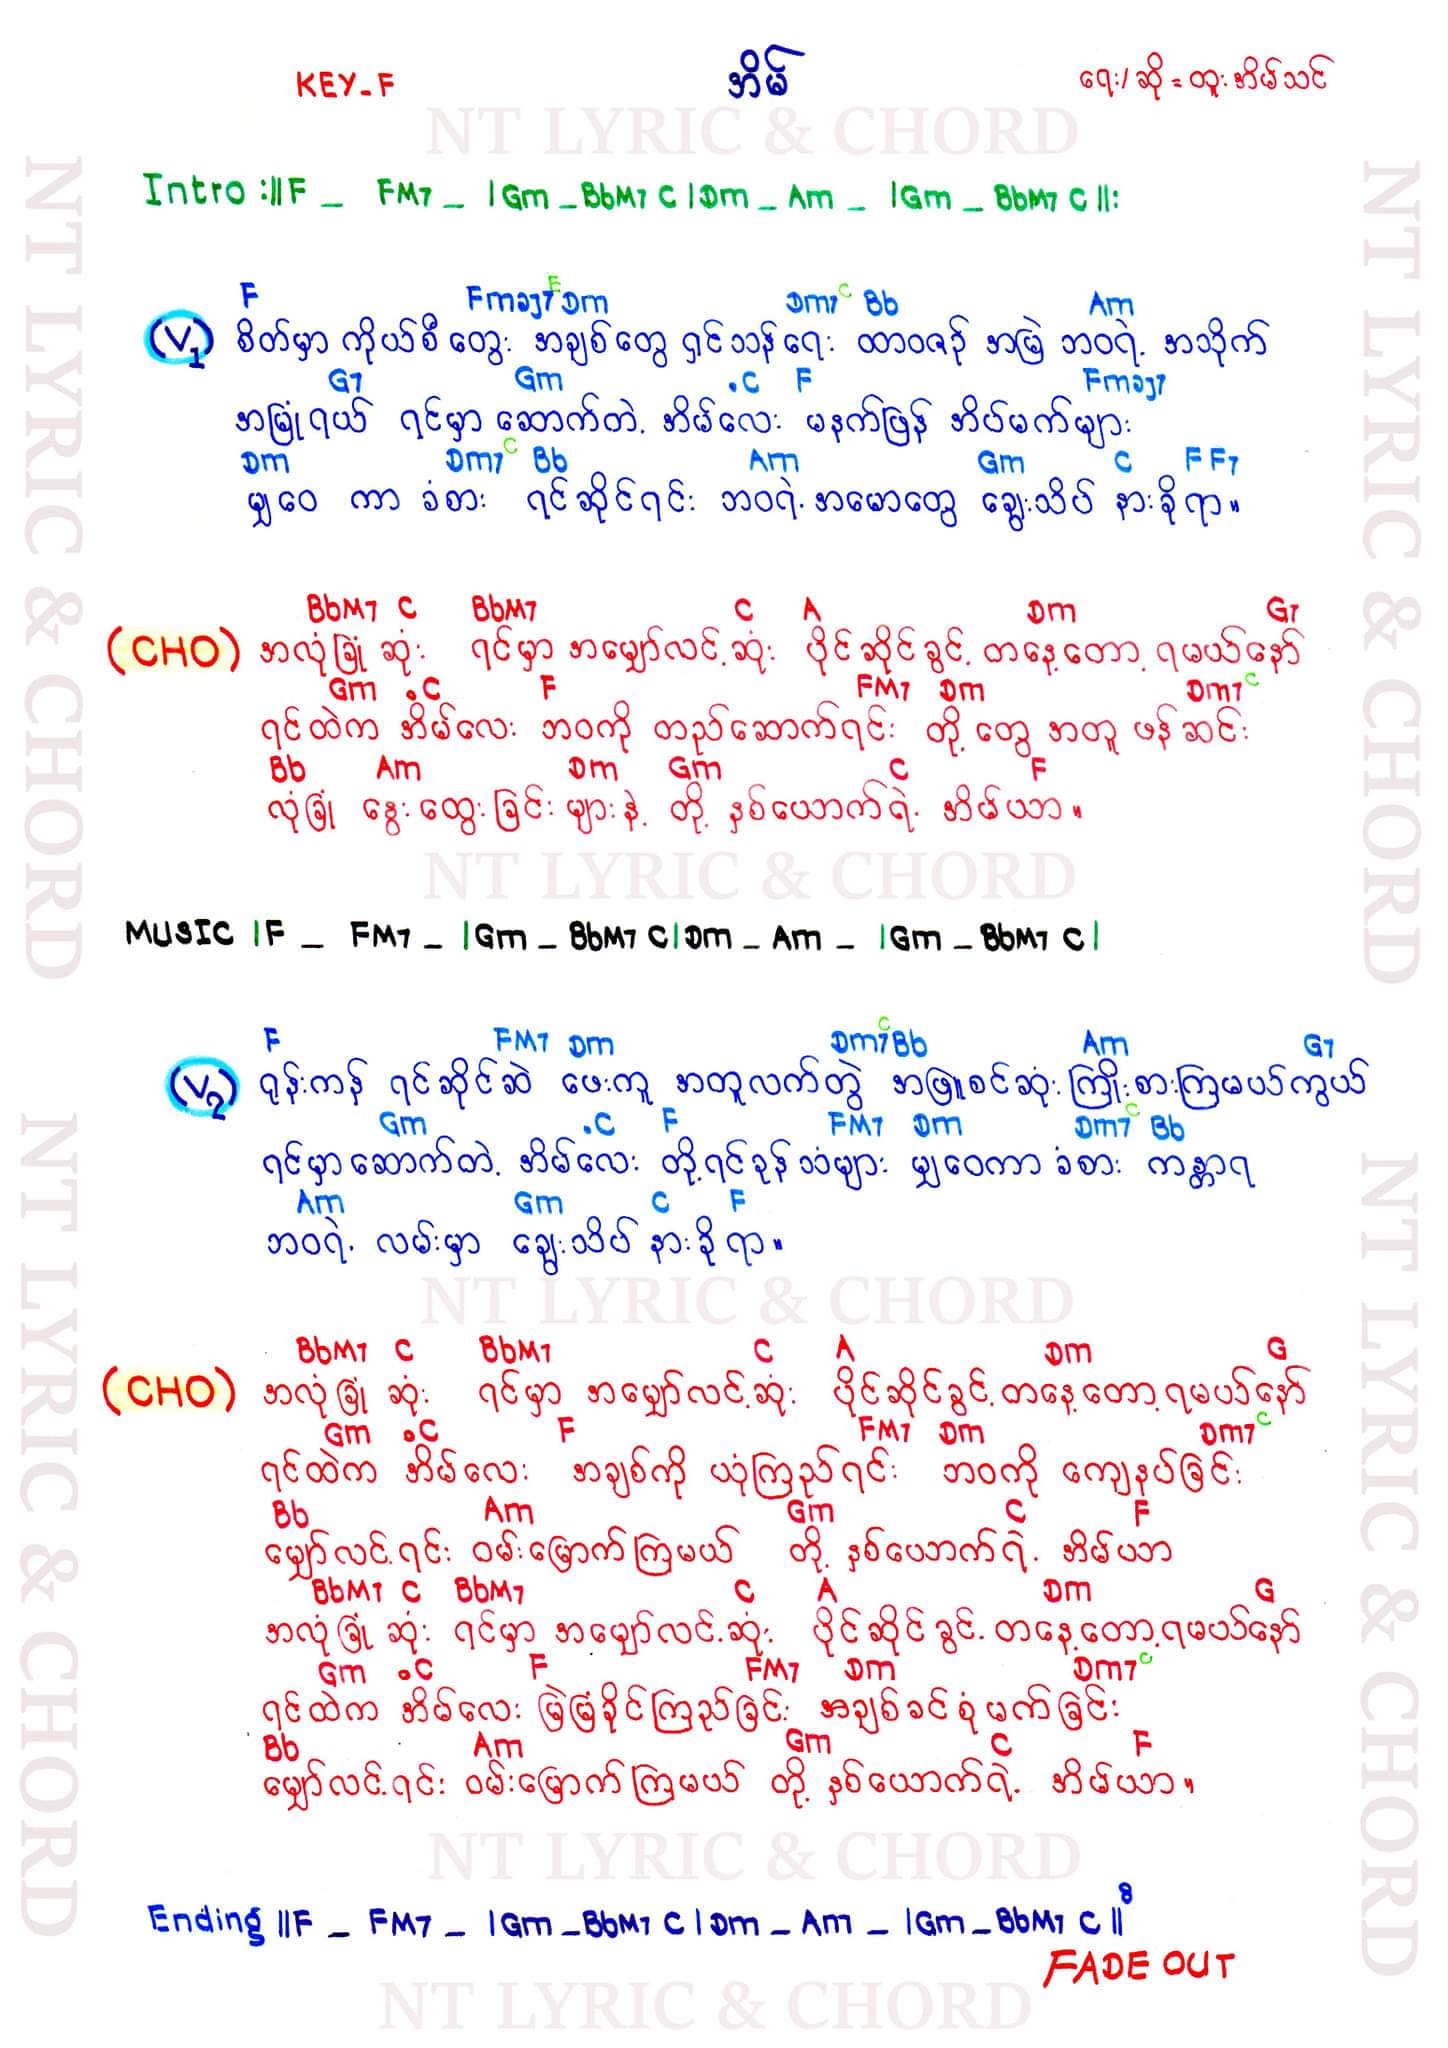 KEY-F
အိမ်
ရေး/ဆို = ထူးအိမ်သင်
NT LYRIC & CHORD
Intro :||F _ FM7 _ |Gm _ BbM7 C |Dm _ Am _ |Gm _ BbM7 C ||:
F Fmaj7 E Dm Dm7 C Bb Am
(V1) စိတ်မှာ ကိုယ်စီ တွေး အချစ်တွေ ရှင်သန်ရေး ထာဝစဉ် အမြဲ ဘဝရဲ့ အသိုက်
G7 Gm .C F Fmaj7
အမြုံရယ် ရင်မှာ ဆောက်တဲ့ အိမ်လေး မနက်ဖြန် အိပ်မက်များ
Dm Dm7 C Bb Am Gm C F F7
မျှဝေ ကာ ခံစား ရင်ဆိုင်ရင်း ဘဝရဲ့ အမောတွေ ချွေးသိပ် နားခိုရာ။
BbM7 C BbM7 C A Dm G7
(CHO) အလုံခြုံ ဆုံး ရင်မှာ အမျှော်လင့်ဆုံး ပိုင်ဆိုင်ခွင့် တနေ့တော့ ရမယ်နော်
Gm .C F FM7 Dm Dm7 C
ရင်ထဲက အိမ်လေး ဘဝကို တည်ဆောက်ရင်း တို့တွေ အတူ ဖန်ဆင်း
Bb Am Dm Gm C F
လုံခြုံ နွေးထွေးခြင်း များနဲ့ တို့ နှစ်ယောက်ရဲ့ အိမ်ယာ။
NT LYRIC & CHORD
MUSIC |F _ FM7 _ |Gm _ BbM7 C|Dm _ Am _ |Gm _ BbM7 C|
F FM7 Dm Dm7 C Bb Am G7
(V2) ရုန်းကန် ရင်ဆိုင်ဆဲ ဖေးကူ အတူလက်တွဲ အဖြူစင်ဆုံး ကြိုးစားကြမယ်ကွယ်
Gm .C F FM7 Dm Dm7 C Bb
ရင်မှာဆောက်တဲ့ အိမ်လေး တို့ရင်ခုန်သံများ မျှဝေကာ ခံစား ကန္တာရ
Am Gm C F
ဘဝရဲ့ လမ်းမှာ ချွေးသိပ် နားခိုရာ။
NT LYRIC & CHORD
BbM7 C BbM7 C A Dm G
(CHO) အလုံခြုံ ဆုံး ရင်မှာ အမျှော်လင့်ဆုံး ပိုင်ဆိုင်ခွင့် တနေ့တော့ ရမယ်နော်
Gm .C F FM7 Dm Dm7 C
ရင်ထဲက အိမ်လေး အချစ်ကို ယုံကြည်ရင်း ဘဝကို ကျေနပ်ခြင်း
Bb Am Gm C F
မျှော်လင့်ရင်း ဝမ်းမြောက်ကြမယ် တို့ နှစ်ယောက်ရဲ့ အိမ်ယာ
BbM7 C BbM7 C A Dm G
အလုံခြုံ ဆုံး ရင်မှာ အမျှော်လင့်ဆုံး ပိုင်ဆိုင်ခွင့် တနေ့တော့ ရမယ်နော်
Gm .C F FM7 Dm Dm7 C
ရင်ထဲက အိမ်လေး မြဲမြံခိုင်ကြည်ခြင်း အချစ်ခင်စုံမက်ခြင်း
Bb Am Gm C F
မျှော်လင့်ရင်း ဝမ်းမြောက်ကြမယ် တို့ နှစ်ယောက်ရဲ့ အိမ်ယာ။
NT LYRIC & CHORD
Ending ||F _ FM7 _ |Gm _ BbM7 C |Dm _ Am _ |Gm _ BbM7 C ||8
FADE OUT
NT LYRIC & CHORD
NT LYRIC & CHORD
NT LYRIC & CHORD
NT LYRIC & CHORD
NT LYRIC & CHORD